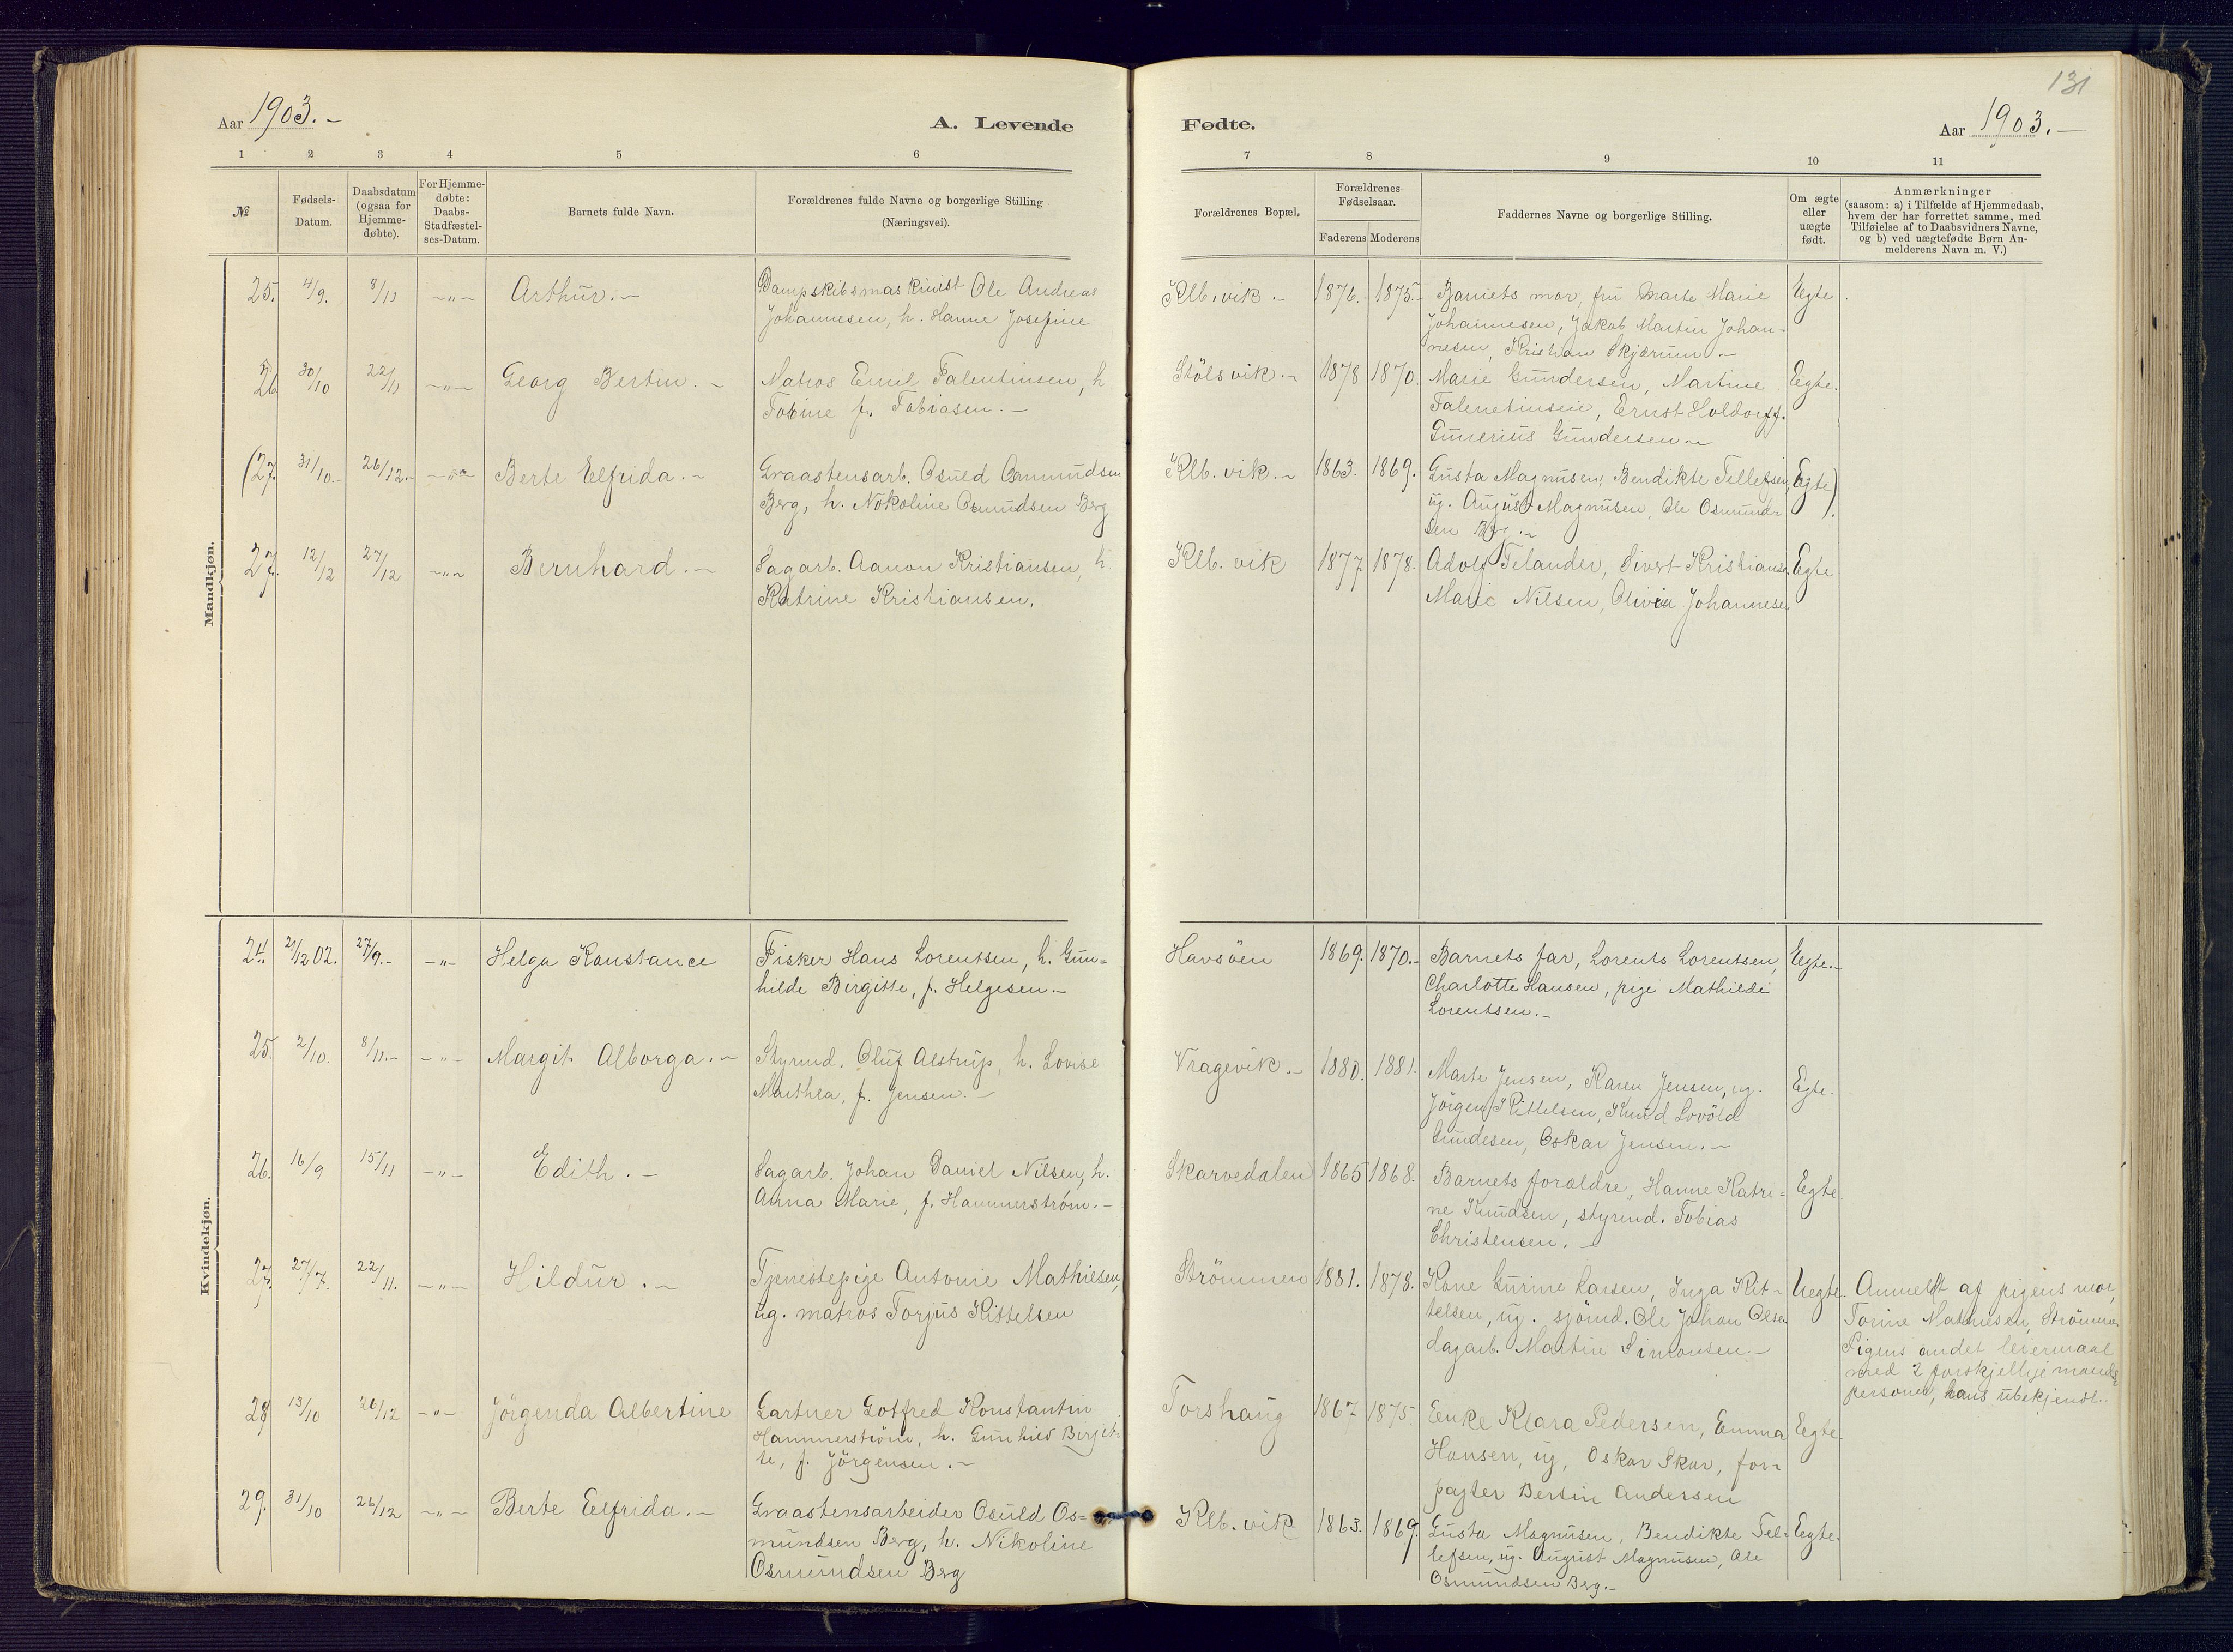 131
Aar 1903.-
A. Levende
Fødte.
Aar 1903.-
1 2 3 4 5 6 7 8 9 10 11
№
Fødsels-
Datum.
Daabsdatum
(ogsaa for
Hjemme-
døbte).
For Hjemme-
døbte:
Daabs-
Stadfæstel-
ses-Datum.
Barnets fulde Navn.
Forældrenes fulde Navne og borgerlige Stilling
(Næringsvei).
Forældrenes Bopæl.
Forældrenes
Fødselsaar.
Faderens Moderens
Faddernes Navne og borgerlige Stilling.
Om ægte
eller
uægte
født.
Anmærkninger
(saasom: a) i Tilfælde af Hjemmedaab,
hvem der har forrettet samme, med
Tilføielse af to Daabsvidners Navne,
og b) ved uægtefødte Børn An-
melderens Navn m. V.)
Mandkjøn.
25. 4/9. 8/11 -"- Arthur.- Dampskibsmaskinist Ole Andreas
Johannesen, h. Hanne Josefine
Klb.vik.- 1876. 1875.- Barnets mor, fru Marte Marie
Johannesen, Jakob Martin Johan-
nesen, Kristian Skjærum-
Egte
26 30/10 22/11 -"- Georg Bertin.- Matros Emil Falentinsen, h
Tobine f. Tobiasen.-
Stölsvik.- 1878 1870. Marie Gundersen, Martine
Falenetinsen, Ernst Holdorff.
Gunerius Gundersen-
Egte.
(27. 31/10.- 26/12.- -"- Berte Elfrida.- Graastensarb. Osuld Osmundsen
Berg, h. Nokoline Osmundsen Berg
Klb.vik.- 1863. 1869. Gusta Magnusen, Bendikte Tellefsen,
ug. August Magnusen, Ole Osmund-
sen Berg.-
Egte).
27. 12/12 27/12 -"- Bernhard.- Sagarb. Aanon Kristiansen, h.
Katrine Kristiansen.
Klb.vik 1877. 1878. Adolf Felander, Sivert Kristiansen
Marie Nilsen, Olivia Johannesen
Egte
Kvindekjøn.
24. 21/12 02. 27/9.- -"- Helga Konstance Fisker Hans Lorentsen, h. Gun-
hilde Birgitte, f. Helgesen.-
Havsöen 1869. 1870.- Barnets far, Lorents Lorentsen,
Charlotte Hansen, pige Mathilde
Lorentsen.-
Egte.-
25. 2/10. 8/11.- -"- Margit Alborga.- Styrmd. Oluf Alstrup, h. Lovise
Marthea, f. Jensen.-
Vragevik.- 1880. 1881. Marte Jensen, Karen Jensen, ug.
Jörgen Kittelsen, Knud Lovöld
Gundesen, Oskar Jensen.-
Egte.
26. 16/9 15/11 -"- Edith.- Sagarb. Johan Daniel Nilsen, h.
Anna Marie, f. Hammerström.-
Skarvedalen 1865 1868. Barnets forældre, Hanne Katri-
ne Knudsen, styrmd. Tobias
Christensen.-
Egte
27. 27/7. 22/11. -"- Hildur.- Tjenestepige Antonie Mathiesen,
ug. matros Torjus Kittelsen
Strömmen 1881. 1878. Kone Gurine Larsen, Inga Kit-
telsen, ug. sjömd. Ole Johan Olsen
dagarb. Martin Simonsen.-
Uegte. Anmeldt af pigens mor,
Torine Mathiesen, Strömmen
Pigens andet leiermaal
med 2 forskjellige mands-
personer, hans ubekjendt..
28 13/10 26/12 -"- Jörgenda Albertine Gartner Gotfred Konstantin
Hammerström, h. Gunhild Birgit-
te, f. Jörgensen.-
Torshaug 1867. 1875. Enke Klara Pedersen, Emma
Hansen, ug, Oskar Skar, for-
pagter Bertin Andersen
Egte.
29. 31/10 26/12 -"- Berte Elfrida.- Graastensarbeider Osuld Os-
mundsen Berg, h. Nikoline
Osmundsen Berg
Klb.vik 1863. 1869. Gusta Magnusen, Bendikte Tel-
lefsen, ug. August Magnusen, Ole
Osmundsen Berg.-
Egte.